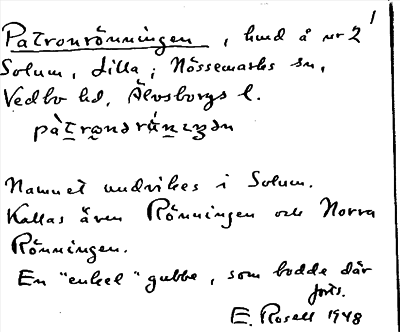 1
Patronrönningen, hmd å nr 2
Solum, Lilla; Nössemarks sn,
Vedbo hd, Älvsborgs l.
Namnet undvikes i Solum.
Kallas även Rönningen och Norra
Rönningen.
En "enkel" gubbe, som bodde där
forts.
E. Rosell 1948